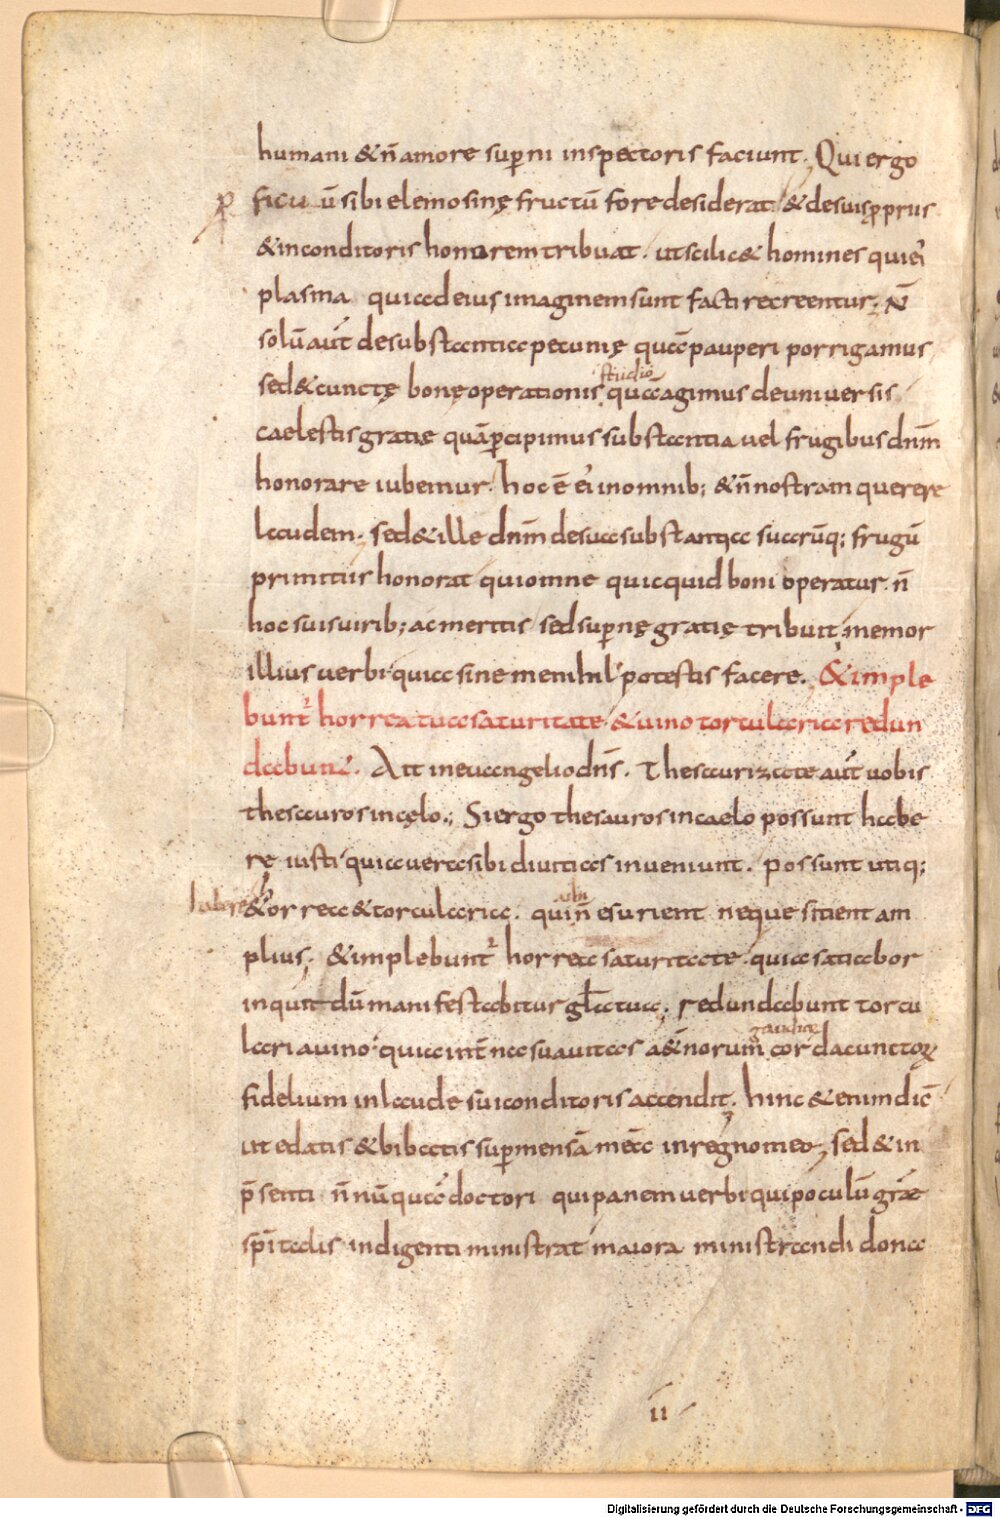 humani &n̄ amore sup̄ni inspectoris faciunt. Qui ergo
ꝓ ficuū sibi elemosinę fructū fore desiderat & de suis ꝓprus
& in conditoris honorem tribuat. ut scilic& homines qui ei'
plasma quia ad eius imaginem sunt facti recreentur. N̄
solū aut̄ de substantia pecunię quā pauperi porrigamus
studio
sed & cunctę bonę operationis quā agimus de universis
caelestis gratię quā ꝑcipimus substantia vel frugibus dnm̄
honorare iubemur. hoc ē ei' in omnib; & n̄ nostram querere
laudem. sed & ille dnm̄ de sua substantia suarūq; frugū
primitiis honorat qui omne quicquid boni operatur. n̄
hoc suis virib; ac meritis sed sup̄nę gratię tribuit memor
illius verbi quia sine me nihil potestis facere. & imple
bunt' horrea tua saturitate & vino torcularia redun
dabunt. Ait in evangelio dn̄s. Thesaurizate aut̄ vobis
thesauros in cęlo.; Si ergo thesauros in caelo possunt habe
re iusti quia veras sibi divitias inveniunt. possunt utiq;
habere & orrea & torcularia. qui n̄ esurient neque sitient am
ubi
plius. & implebunt' horrea saturitate. quia satiabor
inquit dū manifestabitur gl̄a tua. redundabunt torcu
gaudia
laria vino. quia int̄na suavitas a&ernorum cor da cunctoꝝ
fidelium in laude sui conditoris accendit. hinc & enim dic̄
ut edatis & bibatis sup̄ mensā meā in regno meo, sed & in
p̄senti n̄nūquā doctori qui panem verbi qui poculū grae
sp̄italis indigenti ministrat maiora ministrandi dona
II
Digitalisierung gefördert durch die Deutsche Forschungsgemeinschaft - DFG